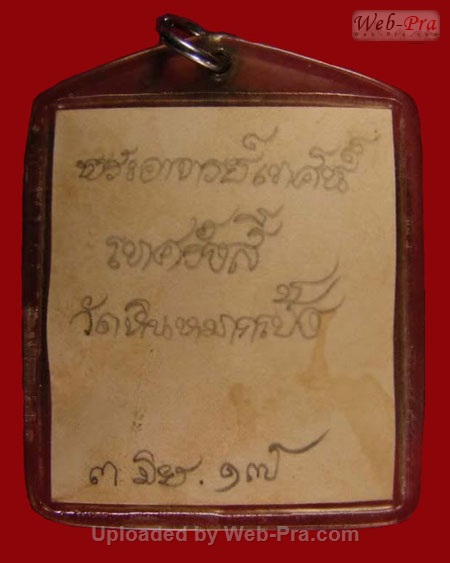 Web-Pra
Web-Pra.com
พระอาจารย์เทศน์
เทศรังสี
วัดหินหมากเป้ง
๓ มิย. ๑๗
Uploaded by Web-Pra.com